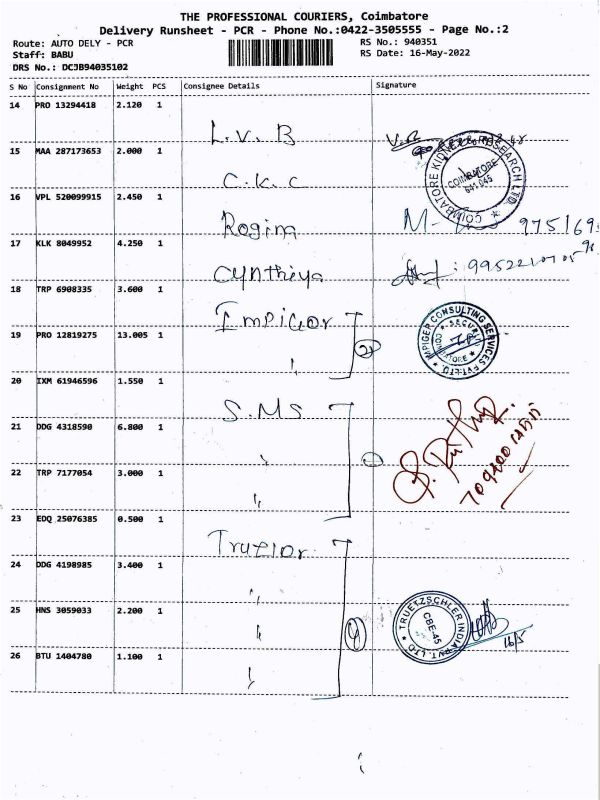 THE PROFESSIONAL COURIERS, Coimbatore
Delivery Runsheet - PCR - Phone No.:0422-3505555 - Page No.:2
Route: AUTO DELY - PCR
RS No.: 940351
Staff: BABU
RS Date: 16-May-2022
DRS No.: DCJB94035102
S No Consignment No Weight PCS Consignee Details Signature
14 PRO 13294418 2.120 1
L.V.B
15 MAA 287173653 2.000 1
C.K.C
COIMBATORE KIDNEY RESEARCH LTD.
COIMBATORE
641 045
16 VPL 520099915 2.450 1
Regina
17 KLK 8049952 4.250 1
Cynthiya
18 TRP 6908335 3.600 1
Impiger
19 PRO 12819275 13.005 1
IMPIGER CONSULTING SERVICES PVT.LTD.
SECURITY
COIMBATORE
20 IXM 61946596 1.550 1
S.MS
21 DDG 4318590 6.800 1
22 TRP 7177054 3.000 1
23 EDQ 25076385 0.500 1
24 DDG 4198985 3.400 1
25 HNS 3059033 2.200 1
TRUETZSCHLER INDIA PVT. LTD
CBE-45
16/5
26 BTU 1404780 1.100 1